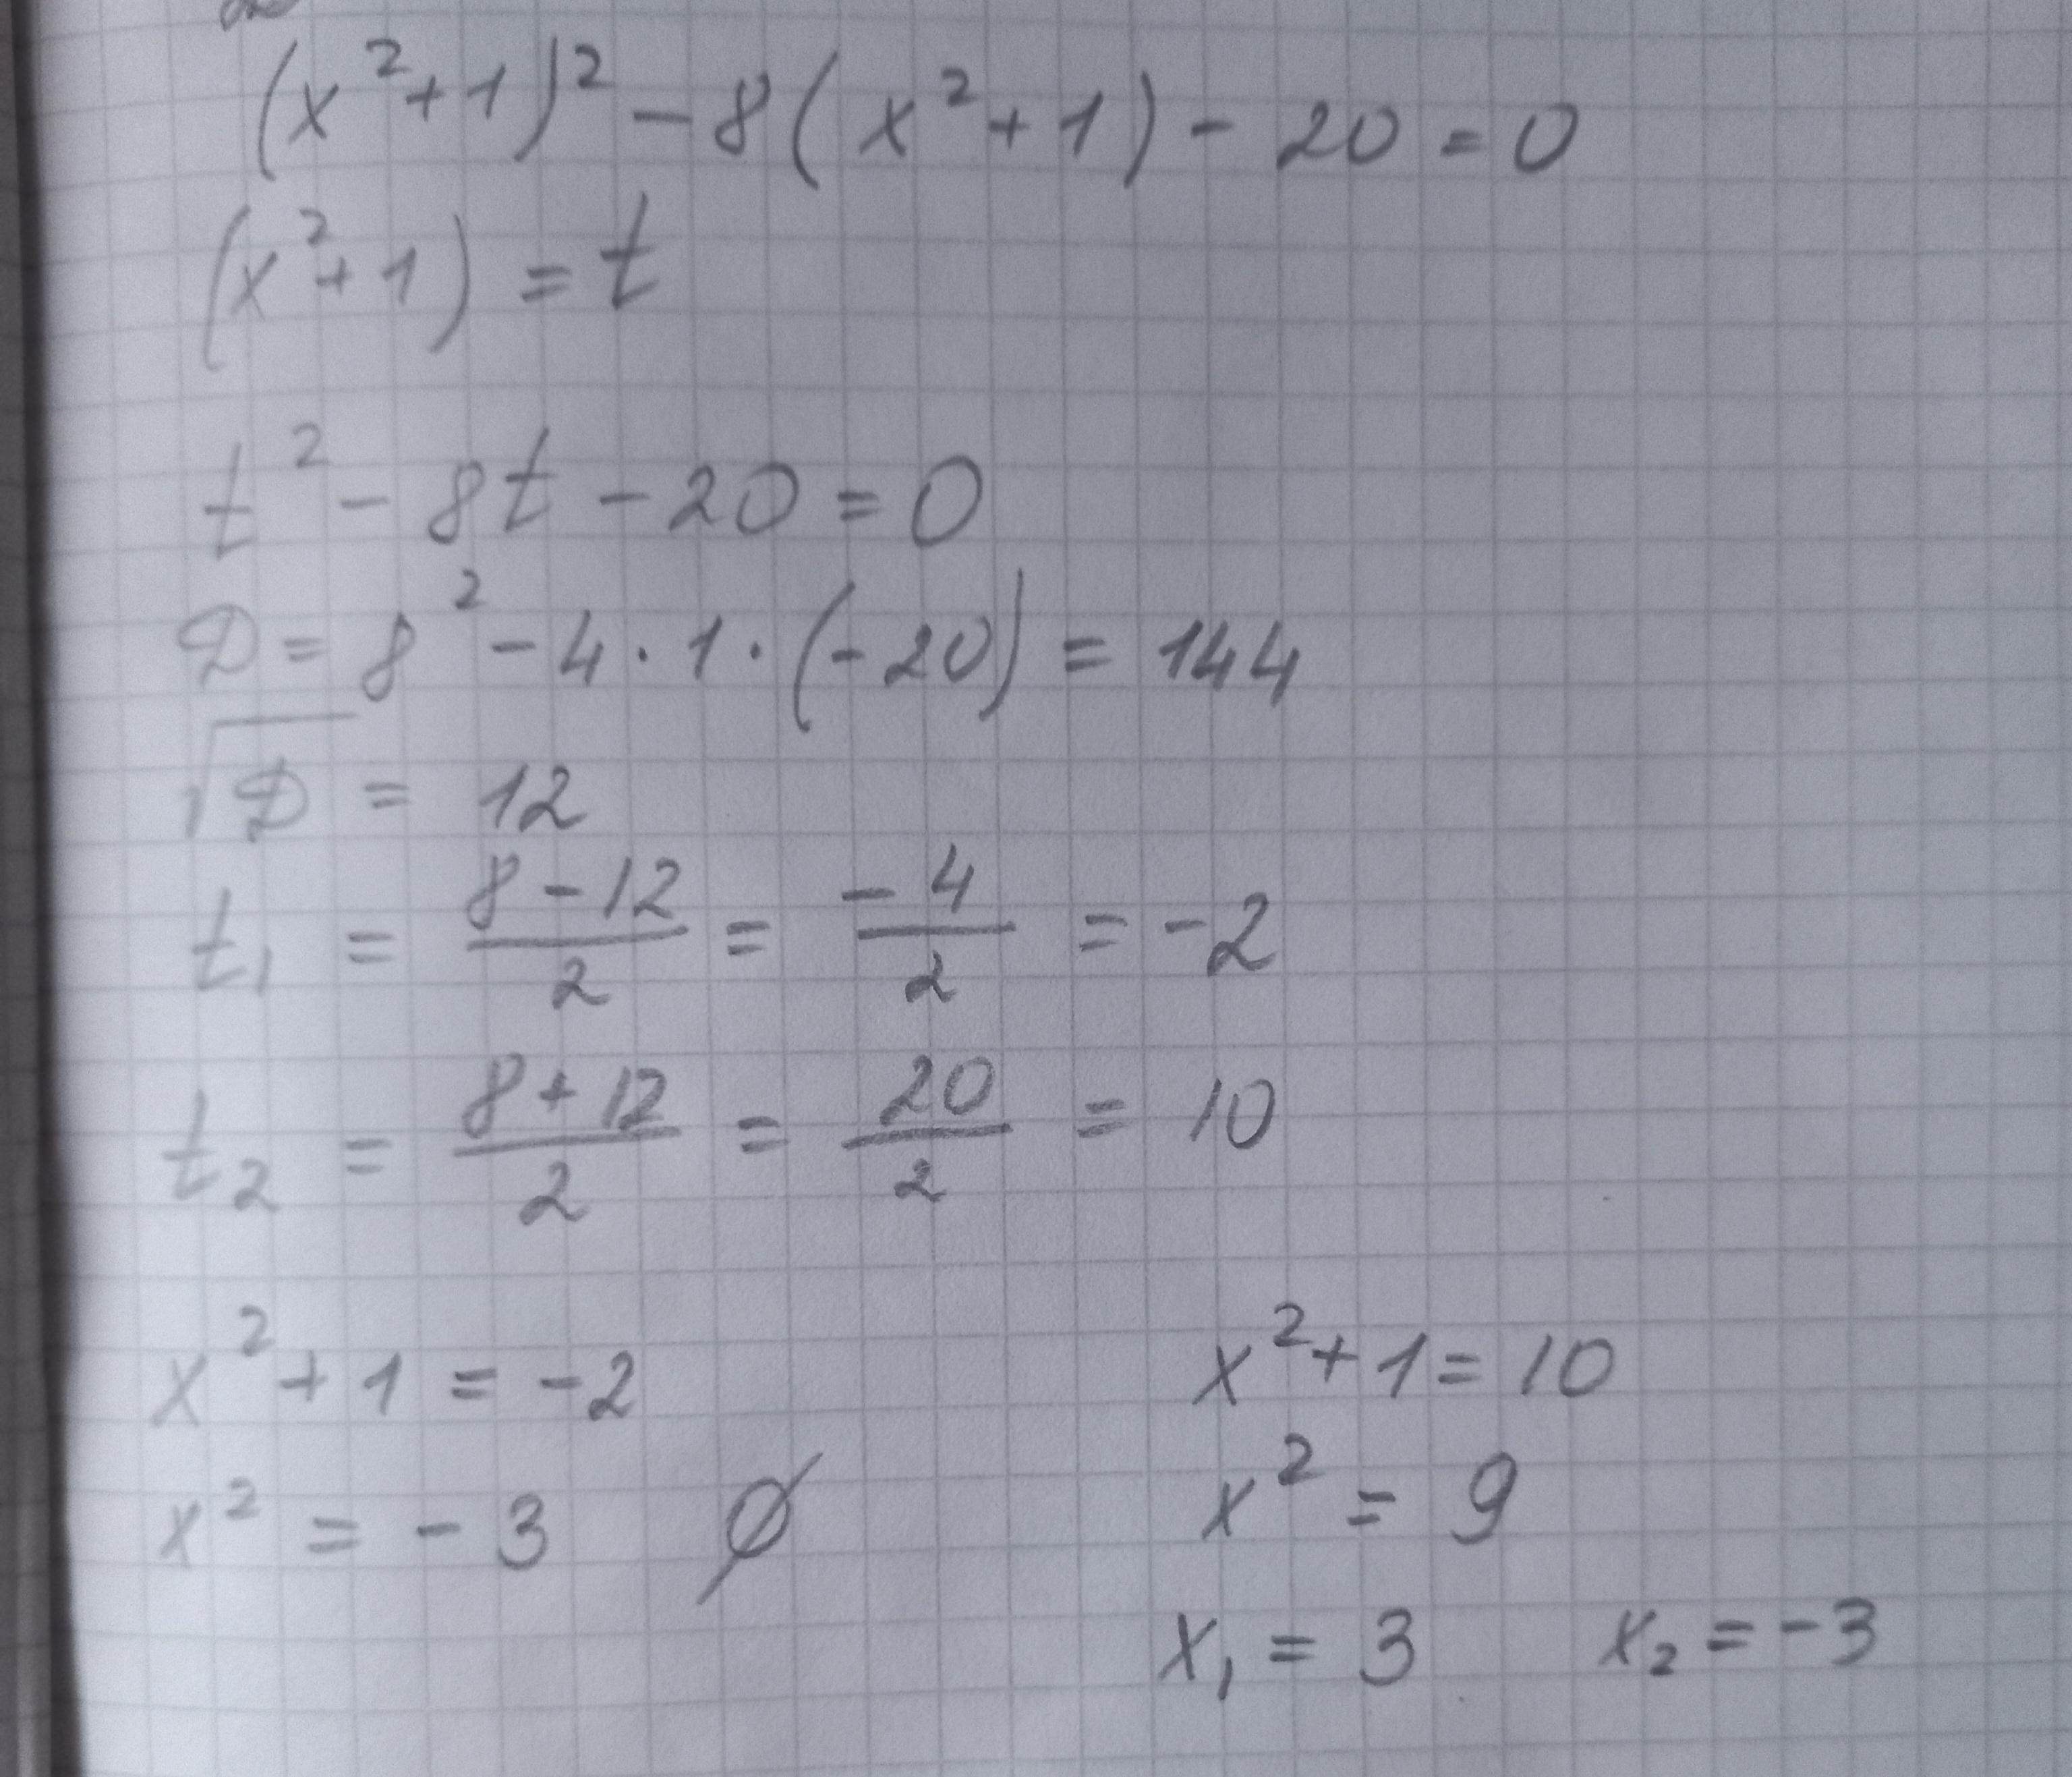 (x²+1)² - 8(x²+1) - 20 = 0
(x²+1) = t
t² - 8t - 20 = 0
D = 8² - 4·1·(-20) = 144
√D = 12
t₁ = (8-12)/2 = -4/2 = -2
t₂ = (8+12)/2 = 20/2 = 10
x²+1 = -2 x²+1 = 10
x² = -3 ∅ x² = 9
x₁ = 3 x₂ = -3